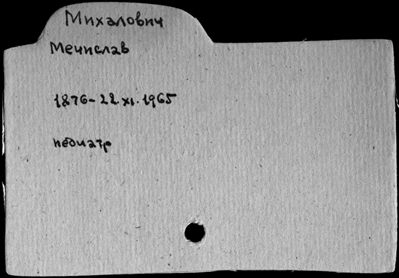 Михалович
Мечислав
1876-22.XI.1965
педиатр